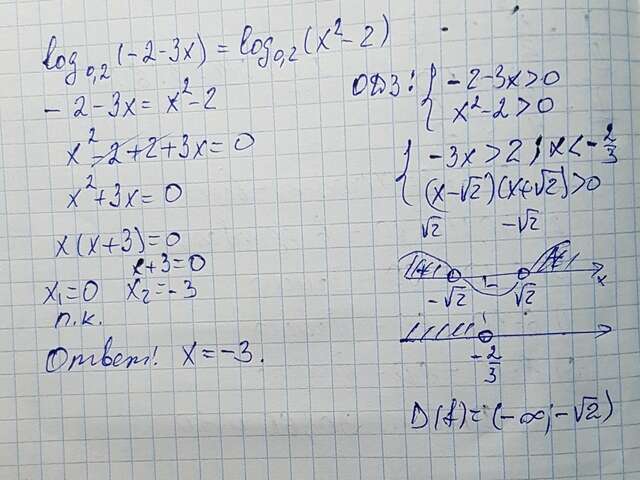 log₀,₂(-2-3x) = log₀,₂(x²-2)
-2-3x = x²-2
x²-2+2+3x=0
x²+3x=0
x(x+3)=0
x+3=0
x₁=0 x₂=-3
п.к.
Ответ! x=-3.
ОДЗ: { -2-3x>0
{ x²-2>0
{ -3x>2; x<-2/3
{ (x-√2)(x+√2)>0
√2 -√2
+ - +
-√2 √2 x
-2/3
D(f)=(-∞;-√2)